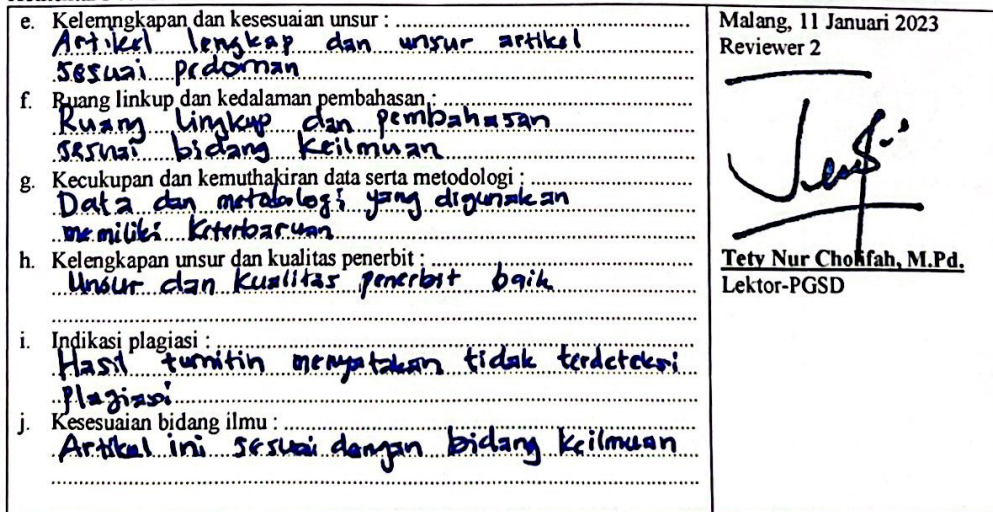 e. Kelemngkapan dan kesesuaian unsur :
Artikel lengkap dan unsur artikel
sesuai pedoman
f. Ruang linkup dan kedalaman pembahasan :
Ruang lingkup dan pembahasan
sesuai bidang keilmuan
g. Kecukupan dan kemuthakiran data serta metodologi :
Data dan metodologi yang digunakan
memiliki keterbaruan
h. Kelengkapan unsur dan kualitas penerbit :
Unsur dan kualitas penerbit baik
i. Indikasi plagiasi :
Hasil turnitin menyatakan tidak terdeteksi
plagiasi
j. Kesesuaian bidang ilmu :
Artikel ini sesuai dengan bidang keilmuan
Malang, 11 Januari 2023
Reviewer 2
Tety Nur Cholifah, M.Pd.
Lektor-PGSD